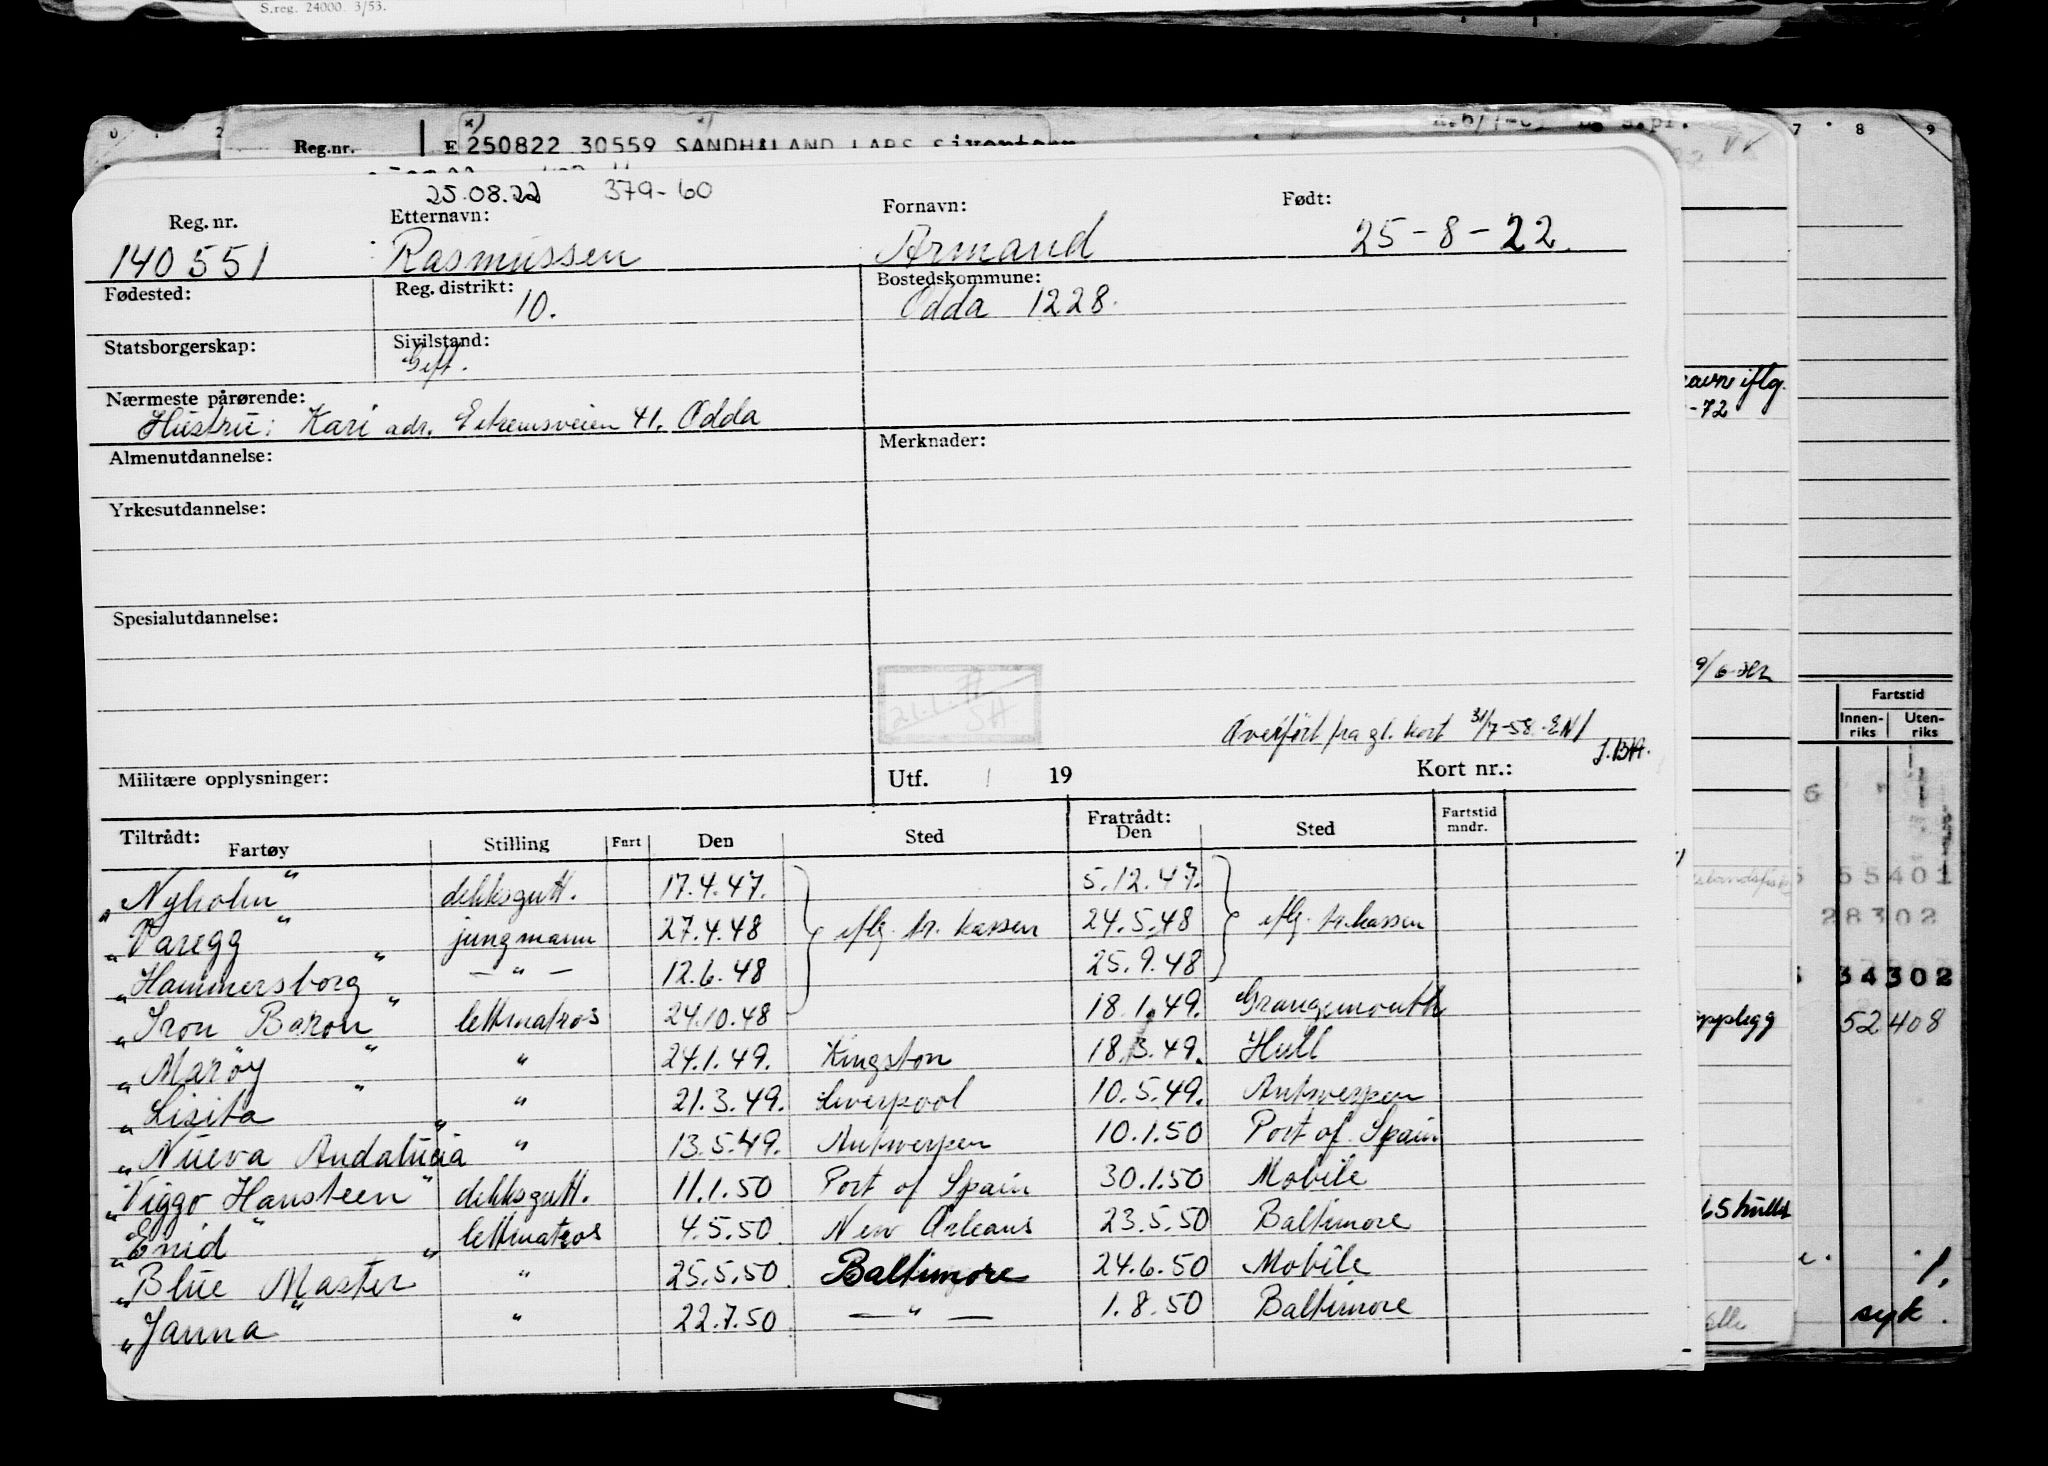 S.reg. 24000 3/53.
0 1 2 7 8 9
Reg.nr. E 250822 30559 SANDHÅLAND LARS Sivertsen
25.08.22 379-60
Reg. nr. Etternavn: Fornavn: Født:
140551 Rasmussen Armand 25-8-22.
Fødested: Reg. distrikt: Bostedskommune:
10. Odda 1228.
Statsborgerskap: Sivilstand:
Gift.
Nærmeste pårørende:
Hustru: Kari adr. Eitrheimsveien 41. Odda
Almenutdannelse: Merknader:
Yrkesutdannelse:
Spesialutdannelse:
Overført fra gl. kort 31/7-58. EN/
J.BH.
Militære opplysninger: Utf. 19 Kort nr.:
Tiltrådt: Fratrådt:
Fartøy Stilling Fart Den Sted Den Sted Fartstid mndr.
"Nyholm" dekksgutt. 17.4.47. 5.12.47.
"Varegg" jungmann 27.4.48 iflg. tr. kassen 24.5.48 iflg. tr. kassen
"Hammersborg" — " — 12.6.48 25.9.48
"Iron Baron" lettmatros 24.10.48 18.1.49. Grangemouth
"Marøy" " 24.1.49. Kingston 18.3.49. Hull
"Lisita" " 21.3.49. Liverpool 10.5.49. Antwerpen
"Nueva Andalucia" " 13.5.49. Antwerpen 10.1.50 Port of Spain
"Viggo Hansteen" dekksgutt. 11.1.50 Port of Spain 30.1.50 Mobile
"Enid" lettmatros 4.5.50 New Orleans 23.5.50 Baltimore
"Blue Master" " 25.5.50 Baltimore 24.6.50 Mobile
"Janna" " 22.7.50 — " — 1.8.50 Baltimore
navn iflg.
-72
9/6
Fartstid
Innen-riks Uten-riks
55401
28302
34302
opplegg 52408
1.
syk.